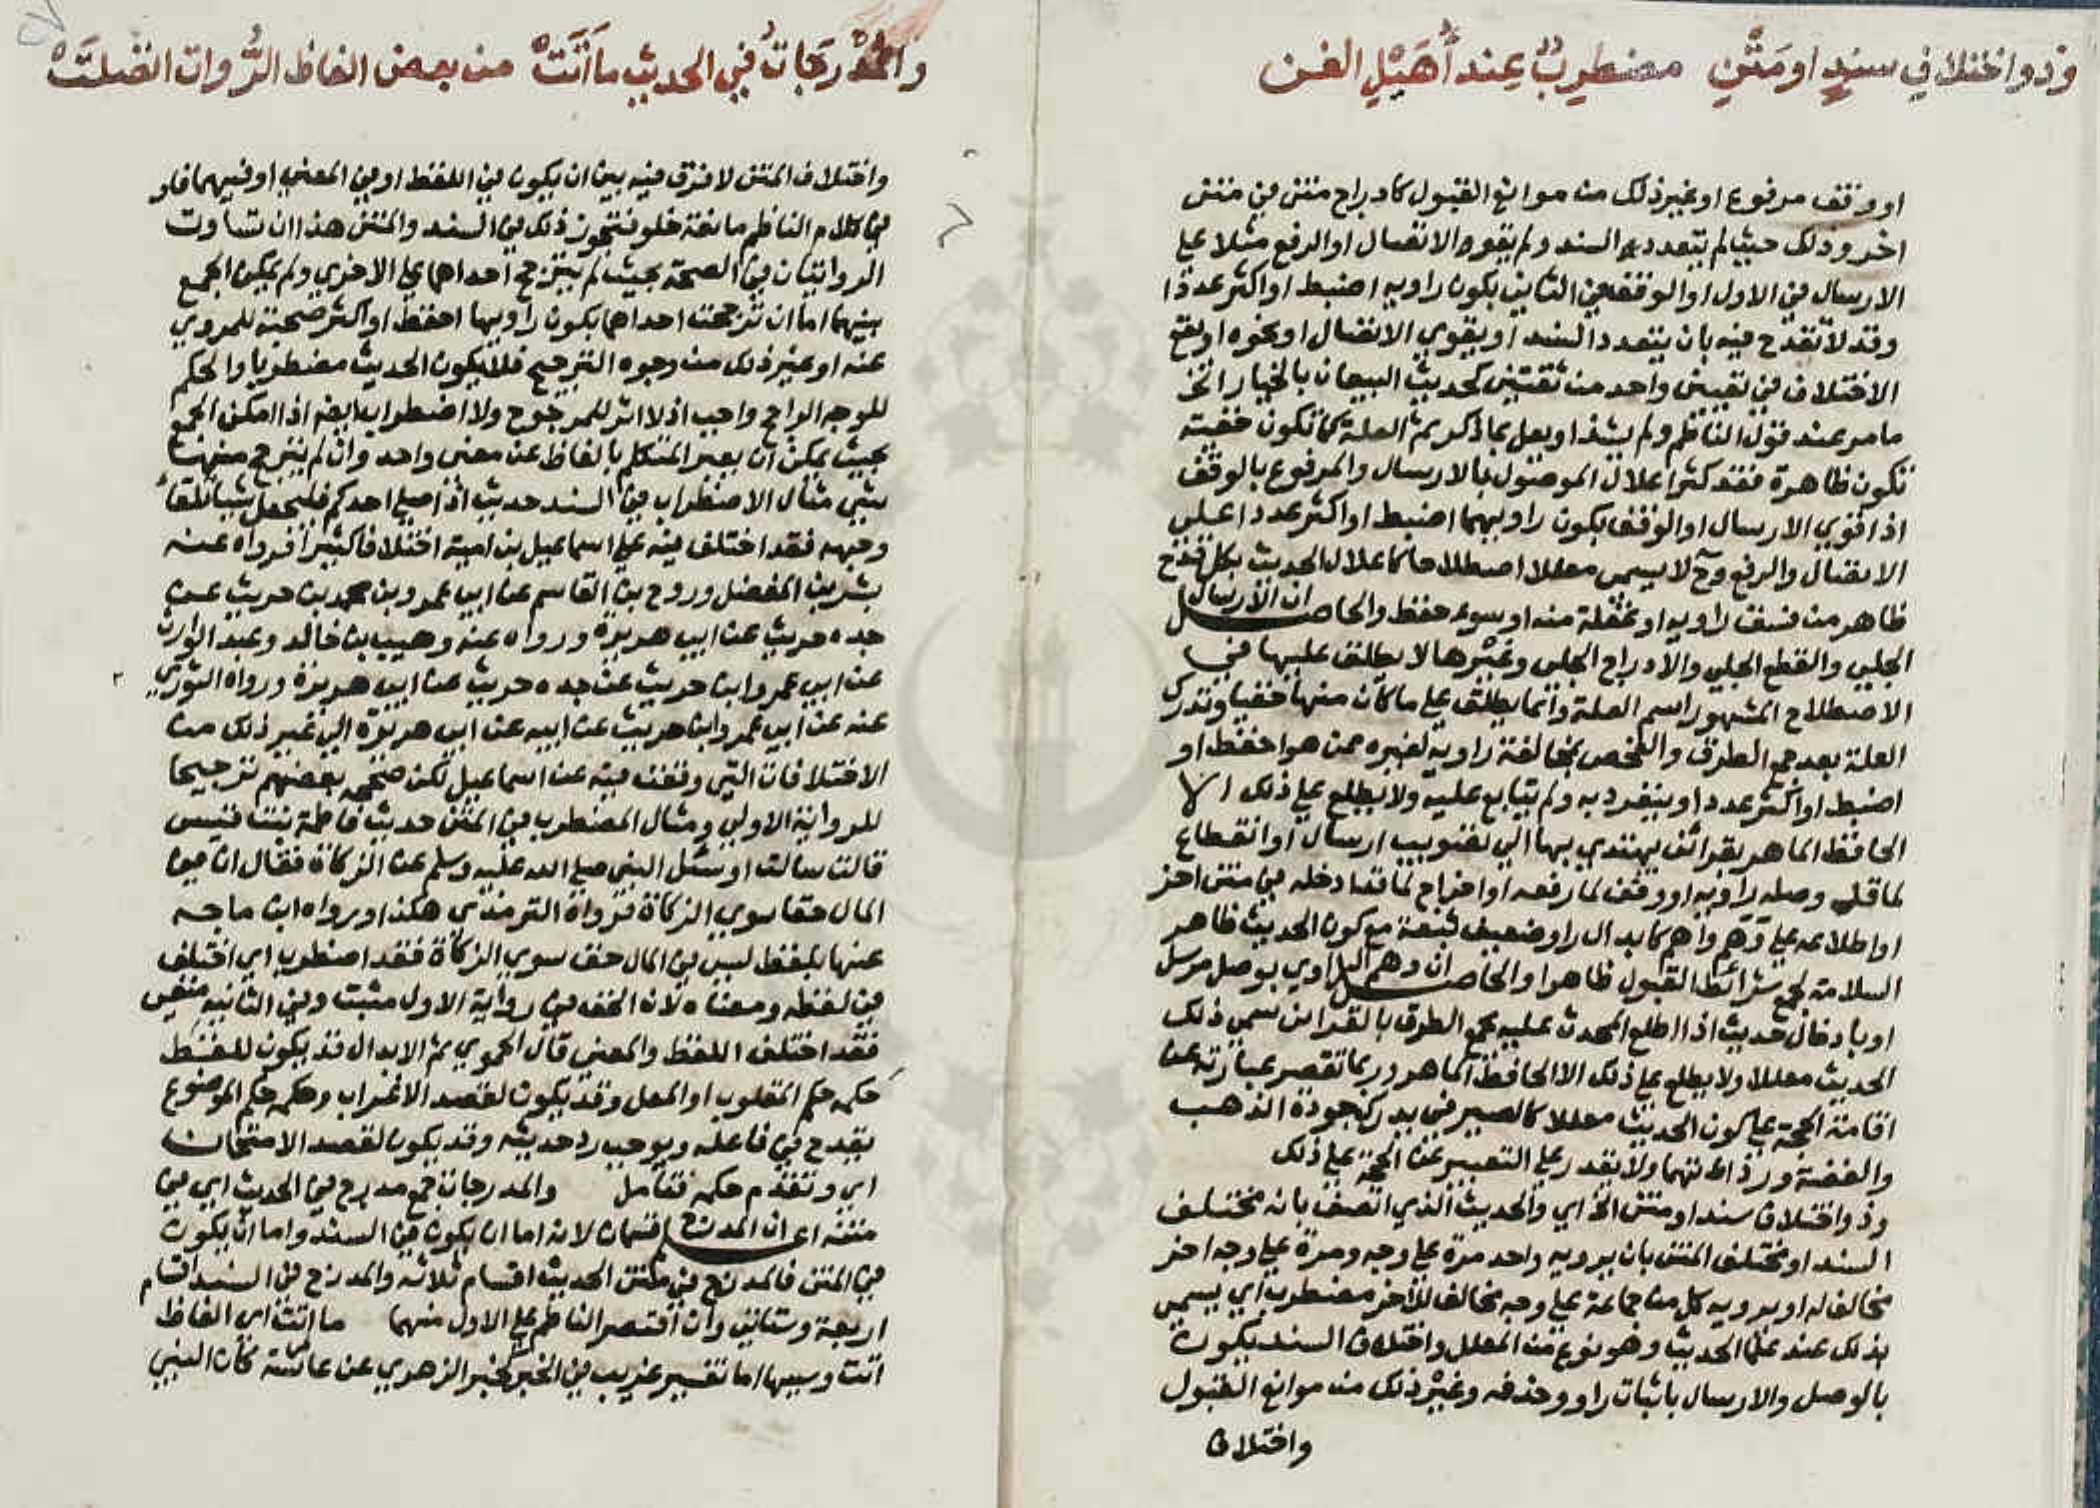 وذو اختلاف سند او متن مضطرب عند أهيل الفن
او وقف مرفوع او غير ذلك من موانع القبول كادراج متن في متن
اخر وذلك حيث لم يتعدد السند ولم يقو الاتصال او الرفع مثلا علي
الارسال في الاول او الوقف في الثاني بكون راويه اضبط او اكثر عددا
وقد لا تقدح فيه بان يتعدد السند او يقوي الاتصال او نحوه او يقع
الاختلاف في تعيين واحد من ثقتين كحديث البيعان بالخيار الخ
ما مر عند قول الناظم ولم يشذ او يعل بما ذكر ثم العلة كما تكون خفية
تكون ظاهرة فقد كثر اعلال الموصول بالارسال والمرفوع بالوقف
اذا قوي الارسال او الوقف بكون راويهما اضبط او اكثر عددا علي
الاتصال والرفع وح لا يسمي معللا اصطلاحا كاعلال الحديث بكل قدح
ظاهر من فسق راويه او غفلة منه او سوء حفظ والحاصل ان الارسال
الجلي والقطع الجلي والادراج الجلي وغيرها لا يطلق عليها في
الاصطلاح المشهور اسم العلة وانما يطلق علي ما كان منها خفيا وتدرك
العلة بعد جمع الطرق والفحص بمخالفة راويه لغيره ممن هو احفظ او
اضبط او اكثر عددا او ينفرد به ولم يتابع عليه ولا يطلع علي ذلك الا
الحافظ الماهر بقرائن يهتدي بها الي تصويب ارسال او انقطاع
لما قد وصله راويه او وقف لما رفعه او اخراج لما قد ادخله في متن اخر
او اطلاعه علي وهم واهم كابدال راو ضعيف بثقة مع كون الحديث ظاهر
السلامة لجمع شرائط القبول ظاهرا والحاصل ان وهم الراوي بوصل مرسل
او بادخال حديث اذا اطلع المحدث عليه بجمع الطرق بالقرائن سمي ذلك
الحديث معللا ولا يطلع علي ذلك الا الحافظ الماهر وربما تقصر عبارته عن
اقامة الحجة علي كون الحديث معللا كالصيرفي يدرك جودة الذهب
والفضة ورذالتهما ولا يقدر علي التعبير عن الحجة علي ذلك
وذو اختلاف سند او متن الخ اي والحديث الذي اتصف بانه مختلف
السند او مختلف المتن بان يرويه واحد مرة علي وجه ومرة علي وجه اخر
مخالف له او يرويه كل من جماعة علي وجه مخالف للآخر مضطرب اي يسمي
بذلك عند علما الحديث وهو نوع من المعلل واختلاف السند يكون
بالوصل والارسال باثبات راو وحذفه وغير ذلك من موانع القبول
واختلاف
والمدرجات في الحديث ما أتت من بعض الفاظ الروات اتصلت
واختلاف المتن لا فرق فيه بين ان يكون في اللفظ او في المعني او فيهما فاو
في كلام الناظم مانعة خلو فتجوز ذلك في السند والمتن هذا ان تساوت
الروايتان في الصحة بحيث لم يترجح احداهما علي الاخري ولم يمكن الجمع
بينهما اما ان ترجحت احداهما بكون راويها احفظ او اكثر صحبة للمروي
عنه او غير ذلك من وجوه الترجيح فلا يكون الحديث مضطربا والحكم
للوجه الراجح واجب اذ لا اثر للمرجوح ولا اضطراب ايضا اذا امكن الجمع
بحيث يمكن ان يعبر المتكلم بالفاظ عن معني واحد وان لم يترجح منها
شي مثال الاضطراب في السند حديث اذا صلي احدكم فليجعل شيا تلقاء
وجهه فقد اختلف فيه علي اسماعيل بن امية اختلافا كثيرا فرواه عنه
بشر بن المفضل وروح بن القاسم عن ابي عمرو بن محمد بن حريث عن
جده حريث عن ابي هريرة ورواه عنه وهيب بن خالد وعبد الوارث
عن ابي عمرو ابن حريث عن جده حريث عن ابي هريرة ورواه الثوري
عنه عن ابي عمرو ابن حريث عن ابيه عن ابي هريرة الي غير ذلك من
الاختلافات التي وقفت فيه عن اسماعيل لكن صححه بعضهم ترجيحا
للرواية الاولي ومثال المضطرب في المتن حديث فاطمة بنت قيس
قالت سالت او سئل النبي صلي الله عليه وسلم عن الزكاة فقال ان في
المال حقا سوي الزكاة فرواه الترمذي هكذا ورواه ابن ماجه
عنها بلفظ ليس في المال حق سوي الزكاة فقد اضطرب اي اختلف
في لفظه ومعناه لان الحق في رواية الاول مثبت وفي الثانيه منفي
فقد اختلف اللفظ والمعني قال الحموي ثم الابدال قد يكون للغلط
حكمه حكم المقلوب او المعل وقد يكون لقصد الاغراب وحكمه حكم الموضوع
يقدح في فاعله ويوجب رد حديثه وقد يكون لقصد الامتحان
اي وتقدم حكمه فتامل والمدرجات جمع مدرج في الحديث اي في
متنه اعلم ان المدرج قسمان لانه اما ان يكون في السند واما ان يكون
في المتن فالمدرج في متن الحديث اقسام ثلاثه والمدرج في السند اقسام
اربعة وستاتي وان اقتصر الناظم علي الاول منهما ما اتت اي الفاظ
اتت وسببها اما تفسير غريب في الخبر كخبر الزهري عن عائشة كان النبي